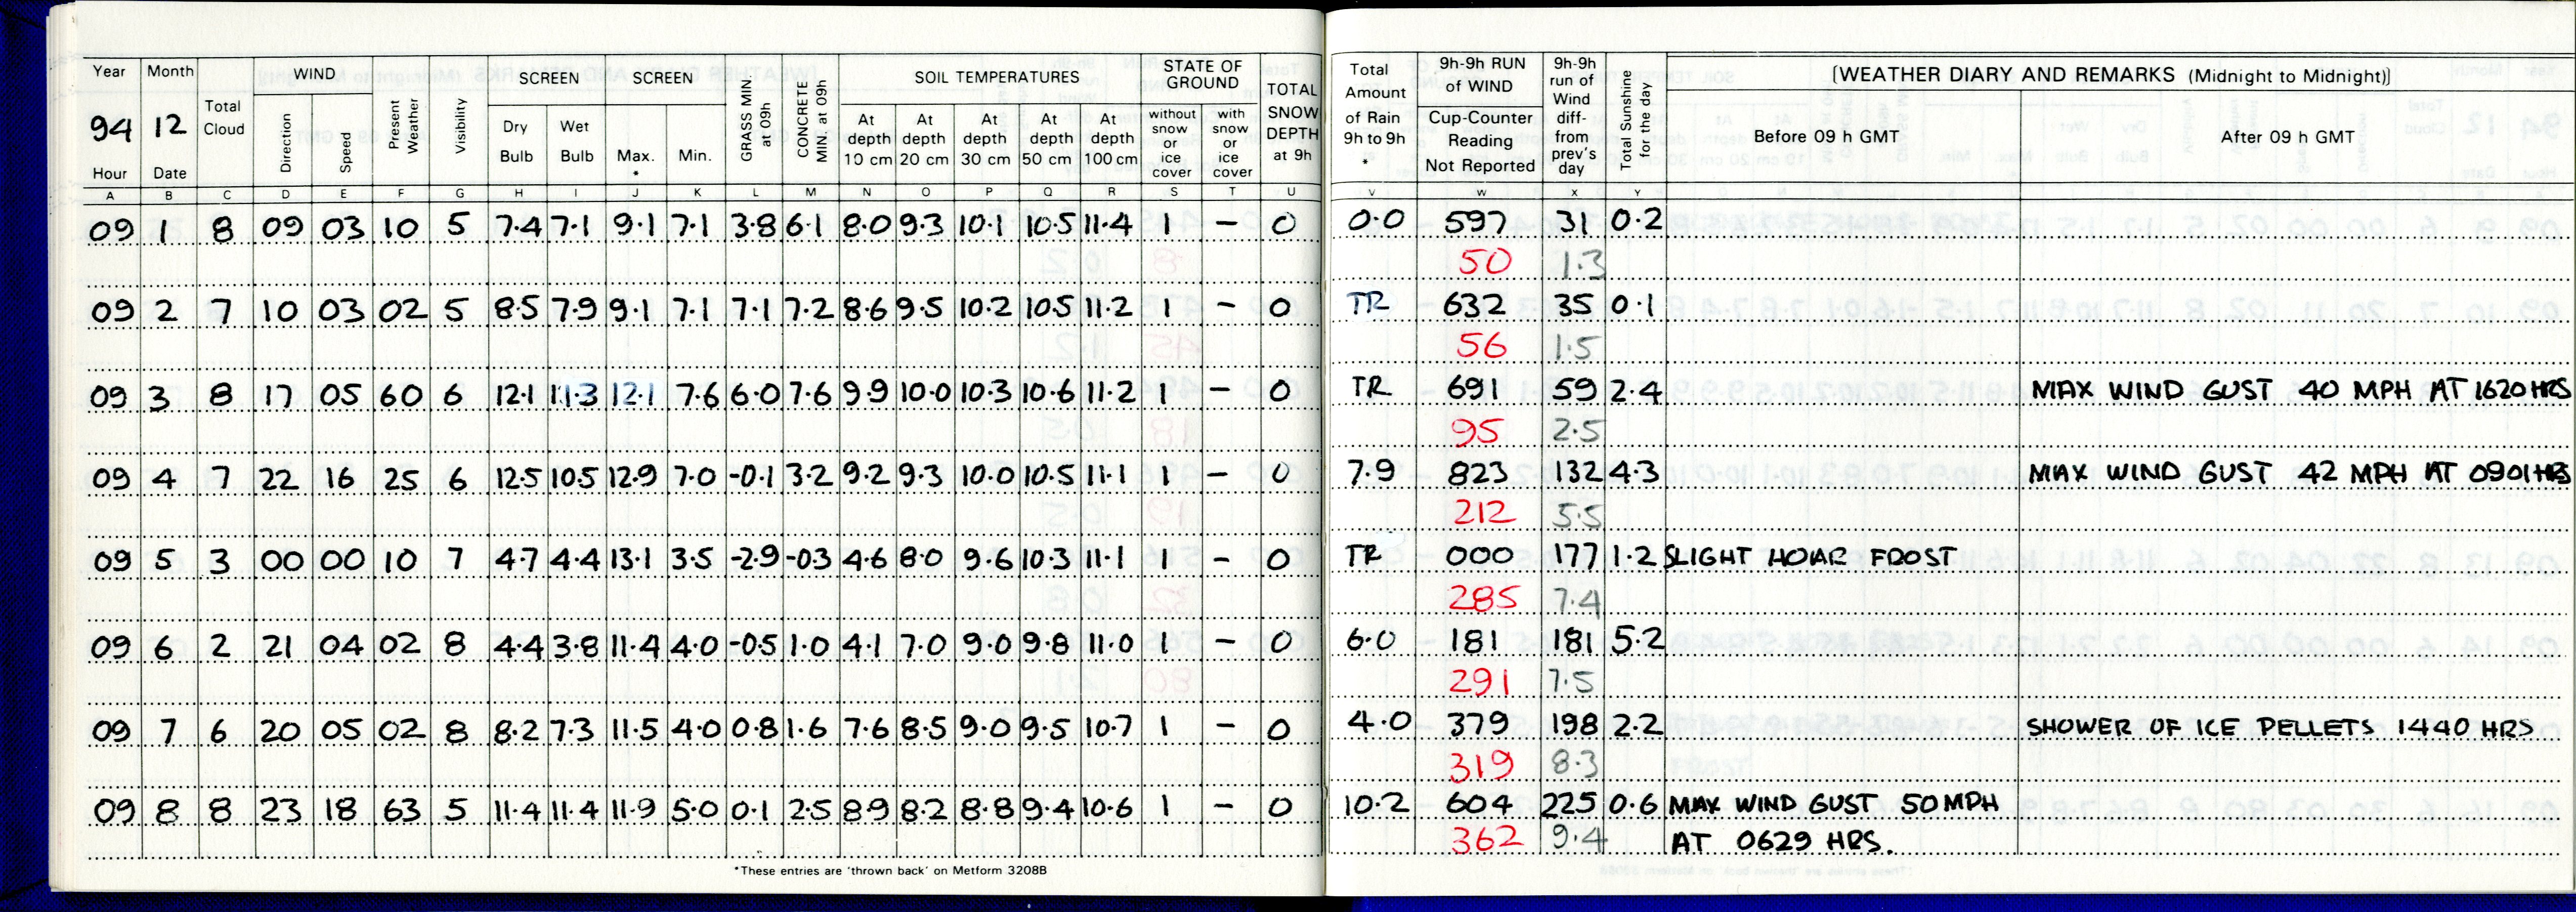 Year Month Total Cloud WIND Present Weather Visibility SCREEN SCREEN GRASS MIN at 09h CONCRETE MIN at 09h SOIL TEMPERATURES STATE OF GROUND TOTAL SNOW DEPTH at 9h
94 12 Direction Speed Dry Bulb Wet Bulb Max. * Min. At depth 10 cm At depth 20 cm At depth 30 cm At depth 50 cm At depth 100 cm without snow or ice cover with snow or ice cover
Hour Date
A B C D E F G H I J K L M N O P Q R S T U
09 1 8 09 03 10 5 7.4 7.1 9.1 7.1 3.8 6.1 8.0 9.3 10.1 10.5 11.4 1 – 0
09 2 7 10 03 02 5 8.5 7.9 9.1 7.1 7.1 7.2 8.6 9.5 10.2 10.5 11.2 1 – 0
09 3 8 17 05 60 6 12.1 11.3 12.1 7.6 6.0 7.6 9.9 10.0 10.3 10.6 11.2 1 – 0
09 4 7 22 16 25 6 12.5 10.5 12.9 7.0 -0.1 3.2 9.2 9.3 10.0 10.5 11.1 1 – 0
09 5 3 00 00 10 7 4.7 4.4 13.1 3.5 -2.9 -0.3 4.6 8.0 9.6 10.3 11.1 1 – 0
09 6 2 21 04 02 8 4.4 3.8 11.4 4.0 -0.5 1.0 4.1 7.0 9.0 9.8 11.0 1 – 0
09 7 6 20 05 02 8 8.2 7.3 11.5 4.0 0.8 1.6 7.6 8.5 9.0 9.5 10.7 1 – 0
09 8 8 23 18 63 5 11.4 11.4 11.9 5.0 0.1 2.5 8.9 8.2 8.8 9.4 10.6 1 – 0
*These entries are 'thrown back' on Metform 3208B
Total Amount of Rain 9h to 9h * 9h-9h RUN of WIND 9h-9h run of Wind diff- from prev's day Total Sunshine for the day [WEATHER DIARY AND REMARKS (Midnight to Midnight)]
Cup-Counter Reading Not Reported Before 09 h GMT After 09 h GMT
V W X Y
0.0 597 31 0.2
50 1.3
TR 632 35 0.1
56 1.5
TR 691 59 2.4 MAX WIND GUST 40 MPH AT 1620 HRS
95 2.5
7.9 823 132 4.3 MAX WIND GUST 42 MPH AT 0901 HRS
212 5.5
TR 000 177 1.2 SLIGHT HOAR FROST
285 7.4
6.0 181 181 5.2
291 7.5
4.0 379 198 2.2 SHOWER OF ICE PELLETS 1440 HRS
319 8.3
10.2 604 225 0.6 MAX WIND GUST 50 MPH
362 9.4 AT 0629 HRS.